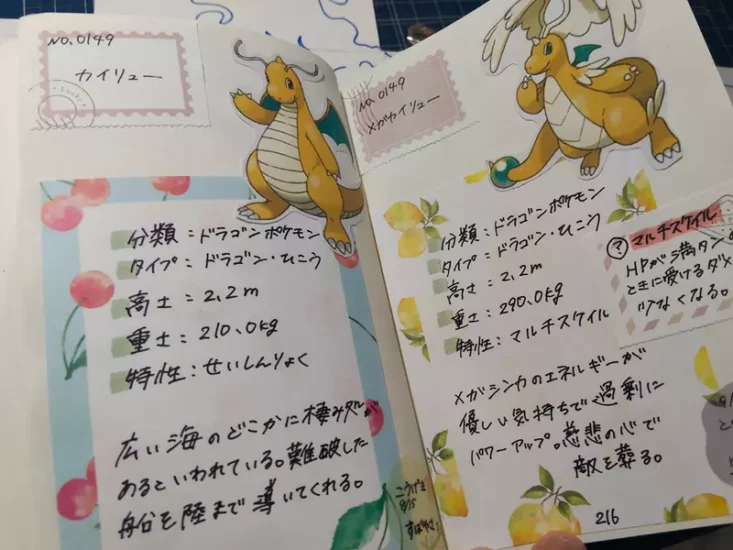 NO.0149
カイリュー
分類：ドラゴンポケモン
タイプ：ドラゴン・ひこう
高さ：2.2m
重さ：210.0kg
特性：せいしんりょく
広い海のどこかに棲みかが
あるといわれている。難破した
船を陸まで導いてくれる。
こうげき
8/15
NO.0149
メガカイリュー
分類：ドラゴンポケモン
タイプ：ドラゴン・ひこう
高さ：2.2m
重さ：290.0kg
特性：マルチスケイル
? マルチスケイル
HPが満タンの
ときに受けるダメ
少なくなる。
メガシンカのエネルギーが
優しい気持ちで過剰に
パワーアップ。慈悲の心で
敵を葬る。
216